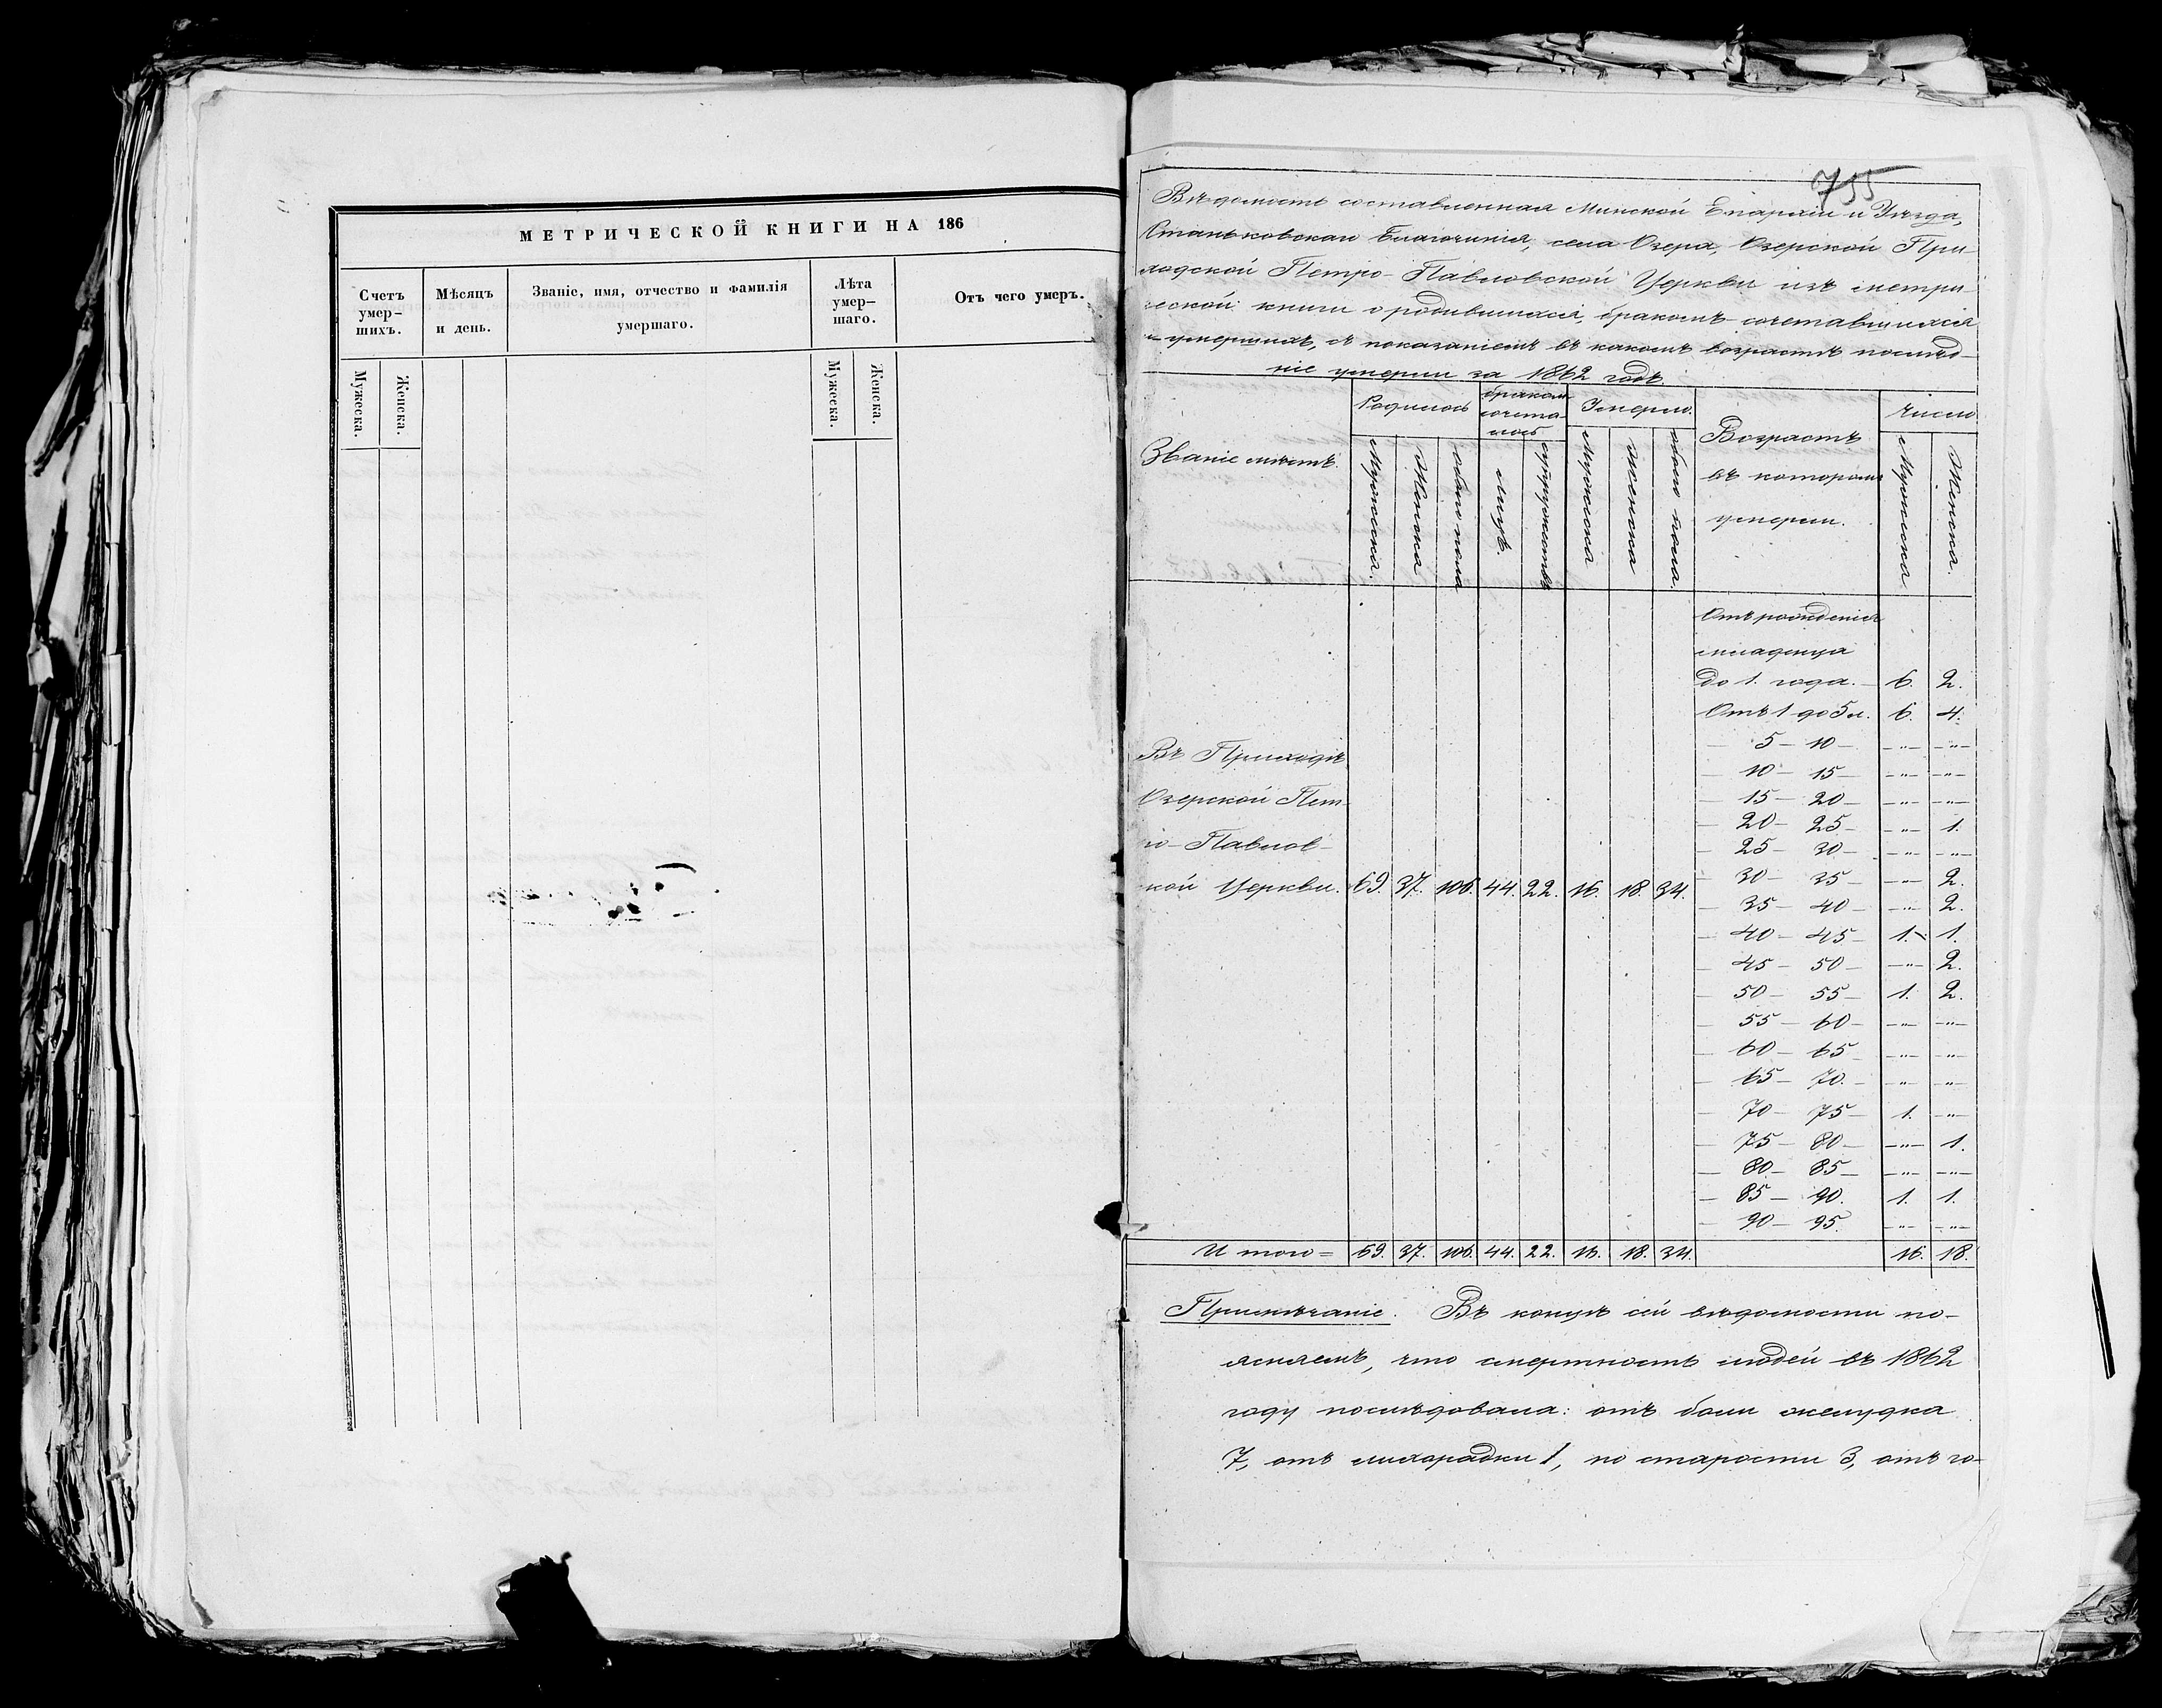 МЕТРИЧЕСКОЙ КНИГИ НА 186
Счетъ умер-шихъ. Мѣсяцъ и день. Званіе, имя, отчество и фамилія умершаго. Лѣта умер-шаго. Отъ чего умеръ.
Мужеска. Женска. Мужеска. Женска.
755
Вѣдомость составленная Минской Епархіи и Уѣзда,
Станьковскаго Благочинія, села Озера, Озерской При-
ходской Петро-Павловской Церкви изъ метри-
ческой книги о родившихся, бракомъ сочетавшихся
и умершихъ, съ показаніемъ въ какомъ возрастѣ послѣд-
ніе умерли за 1862 годъ.
Званіе мѣстъ. Родилось бракомъ сочета-лось Умерло. Возрастъ въ которомъ умерли. Число
Мужеска. Женска обоего пола лицъ. супружествъ Мужеска Женска обоего пола. Мужеска Женска.
Отъ рожденія
младенца
до 1. года. — 6. 2.
Отъ 1 до 5 л. 6. 4.
— 5 — 10 — —"— —"—
— 10 — 15 — —"— —"—
— 15 — 20 — —"— —"—
— 20 — 25 — —"— 1.
— 25 — 30 — —"— —"—
— 30 — 35 — —"— 2.
— 35 — 40 — —"— 2.
— 40 — 45 — 1. 1.
— 45 — 50 — —"— 2.
— 50 — 55 — 1. 2.
— 55 — 60 — —"— —"—
— 60 — 65 — —"— —"—
— 65 — 70. — —"— —"—
— 70 — 75 — 1. —"—
— 75 — 80 — —"— 1.
— 80 — 85 — —"— —"—
— 85 — 90. 1. 1.
— 90 — 95. —"— —"—
Въ Приходѣ
Озерской Пет-
ро-Павлов-
кой Церкви. 69. 37. 106. 44. 22. 16. 18. 34.
И того = 69. 37. 106. 44. 22. 16. 18. 34. 16. 18.
Примѣчаніе. Въ концѣ сей вѣдомости по-
ясняемъ, что смертность людей въ 1862
году послѣдовала: отъ боли желудка
7, отъ лихорадки 1, по старости 3, отъ го-